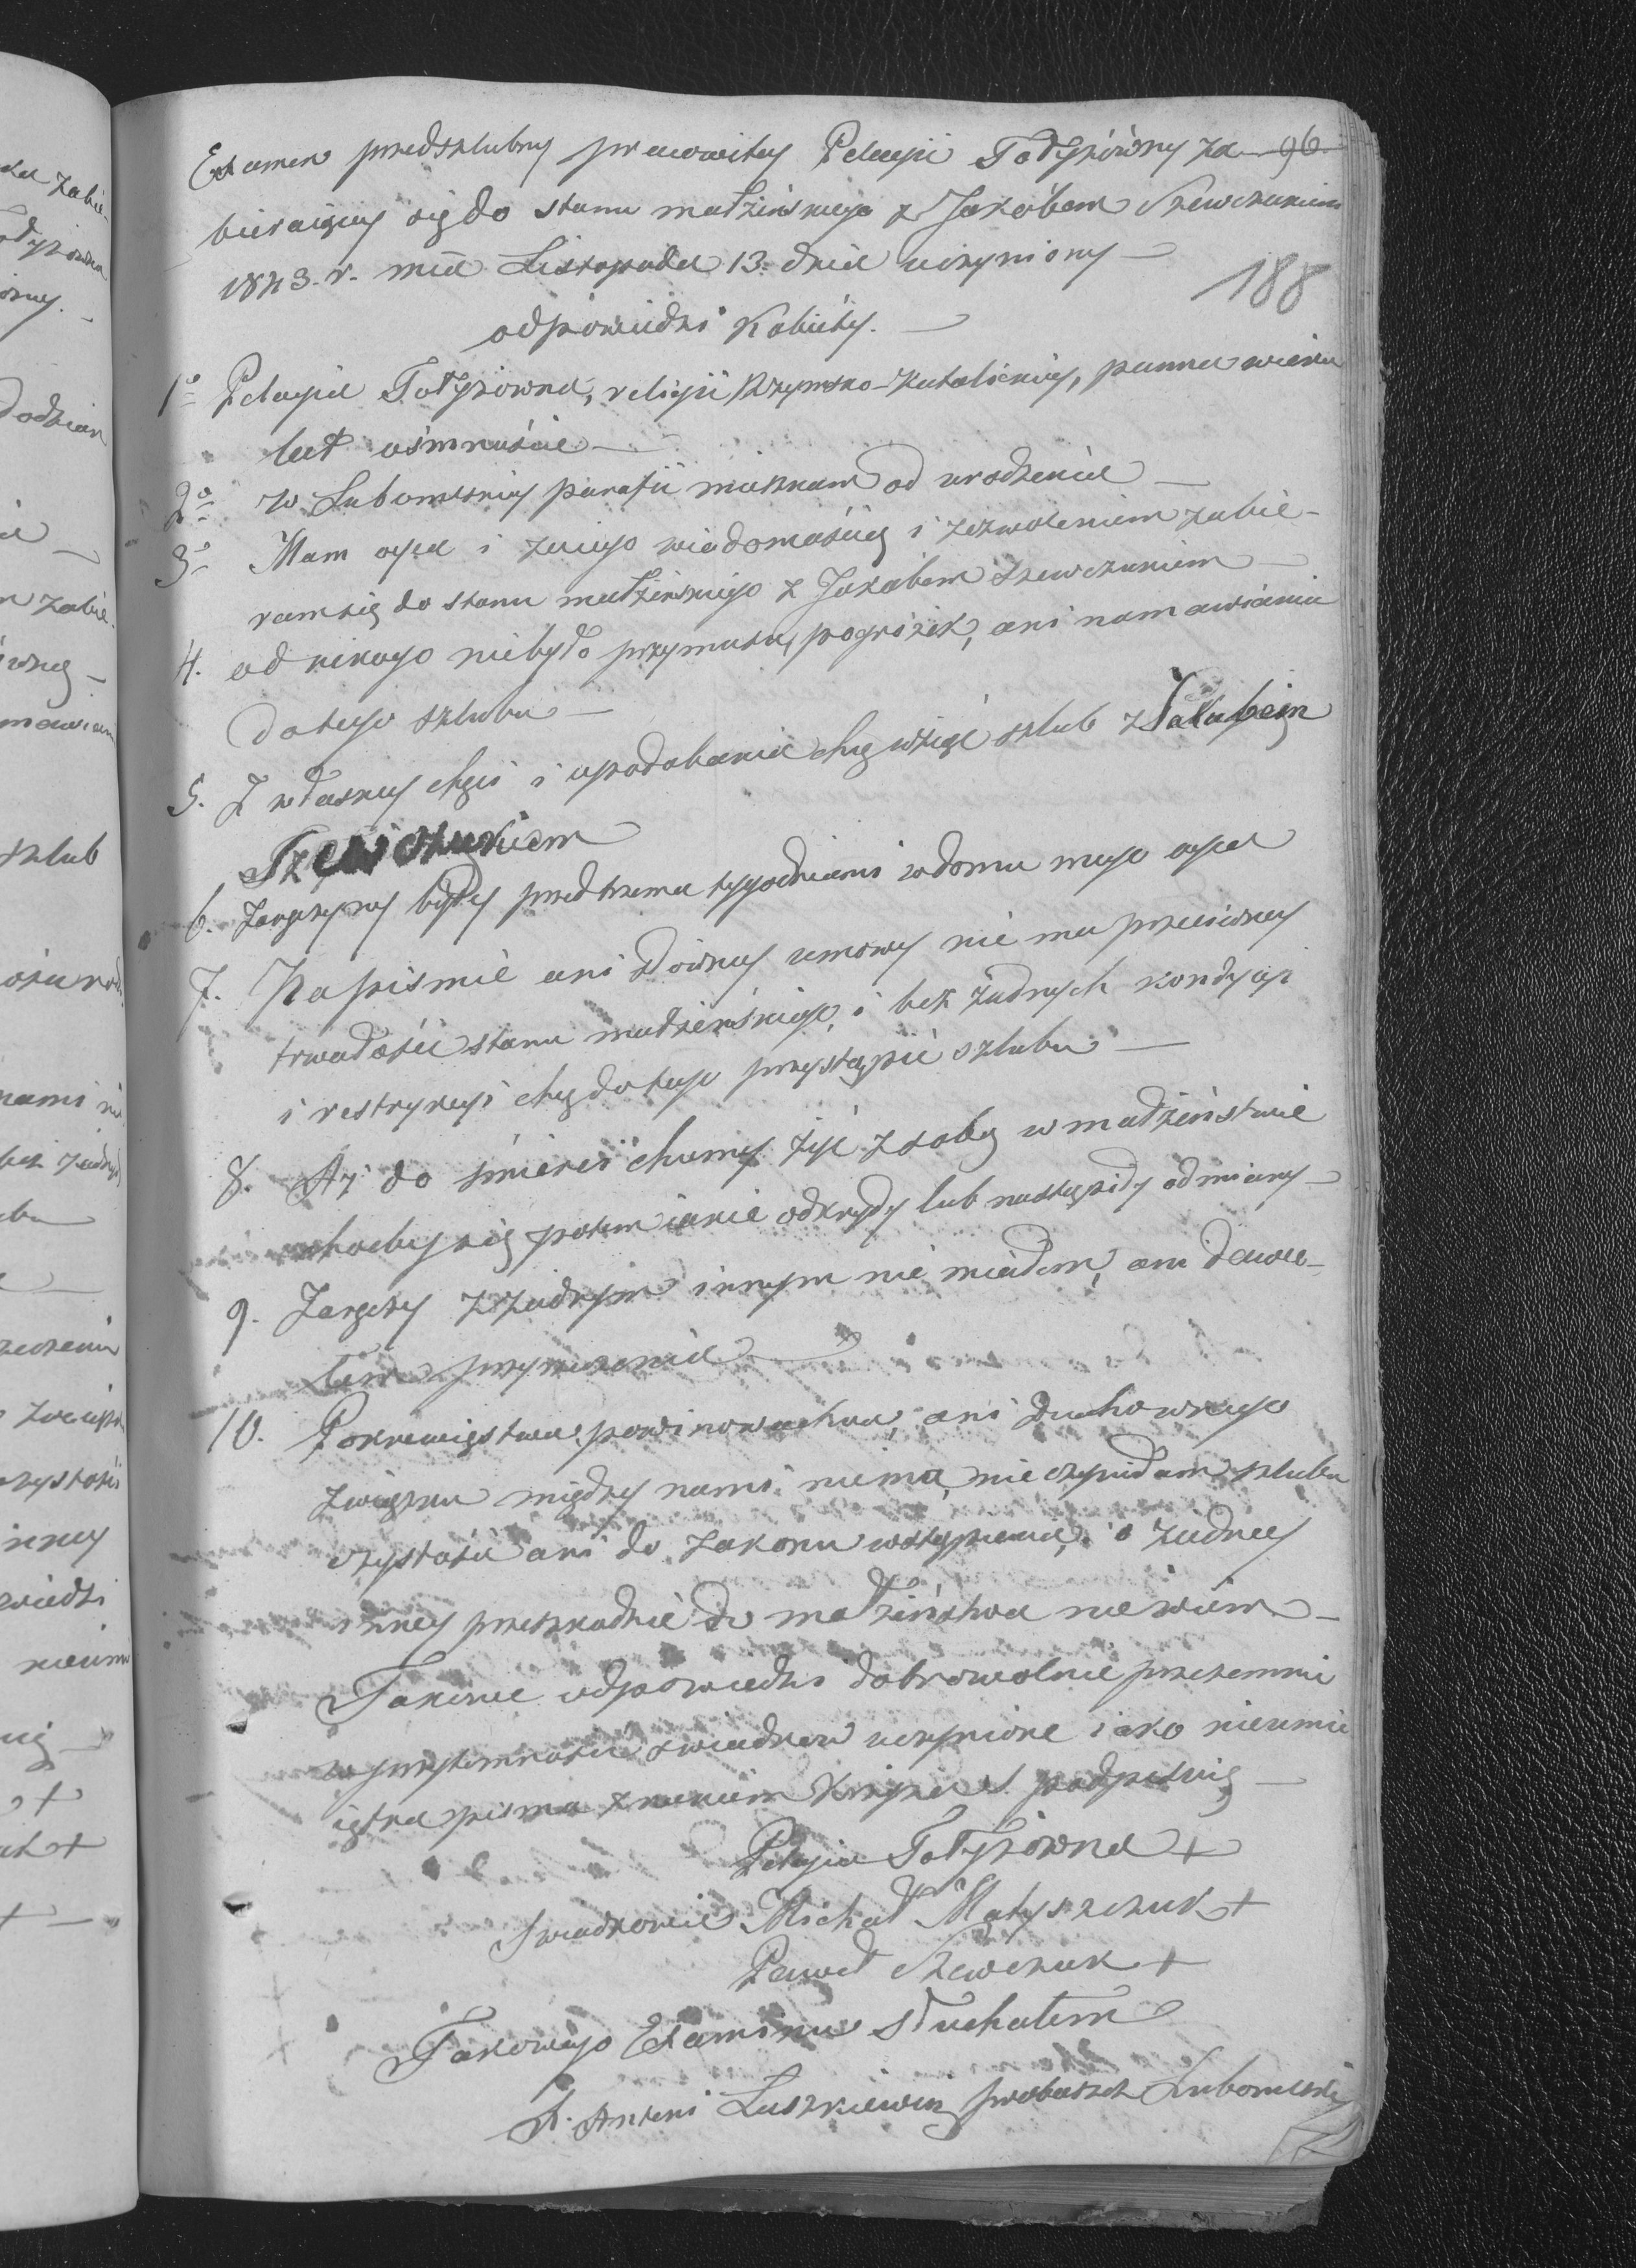 Examen przedszlubny pracowitey Pelagii Tołyżówny za- 96.
bieraiącey się do stanu małżeńskiego z Jakóbem Szewczukiem
1843. r. mca Listopada 13. dnia uczyniony —
188
odpowiedzi Kobiéty. —
1º Pelagia Tołyżowna, religii Rzymsko-Katolickiey, panna wieku
lat ośmnaście —
2º w Lubomlskiey parafii mieszkam od urodzenia —
3º Mam oyca i z iego wiadomością i zezwoleniem zabie-
ram się do stanu małżeńskiego z Jakobem Szewczukiem —
4. od nikogo niebyło przymusu, pogróżek, ani namawiania
do tego szlubu —
5. Z własney chęci i upodobania chcę wziąć szlub z Jakubem
Szewczukiem
6. Zaręczyny były przed trzema tygodniami w domu mego oyca
7. Na piśmie ani słowney umowy nie ma przeciwney
trwałości stanu małżeńskiego, i bez żadnych kondycyi
i restrykcyi chcę do tego przystąpić szlubu —
8. Aż do śmierci chcemy żyć z sobą w małżeństwie
choćby się potem iakie odkryły lub nastąpiły odmiany —
9. Zaręczy z żadnym innym nie miałam, ani dawa-
łam przyrzeczenia —
10. Pokrewieństwa, powinowactwa, ani duchownego
związku między nami niema, nie czyniłam szlubu
czystości ani do zakonu wstąpienia, i o żadney
inney przeszkodzie do małżeństwa nie wiem —
Takowe odpowiedzi dobrowolnie przezemnie
w przytomności świadków uczynione iako nieumie
iętna pisma znakiem Krzyża S. podpisuię —
Pelagia Tołyżowna +
Swiadkowie Michał Matyszczuk +
Paweł Szewczuk +
Takowego Examinu słuchałem
X. Antoni Laszkiewicz proboszcz Lubomlski